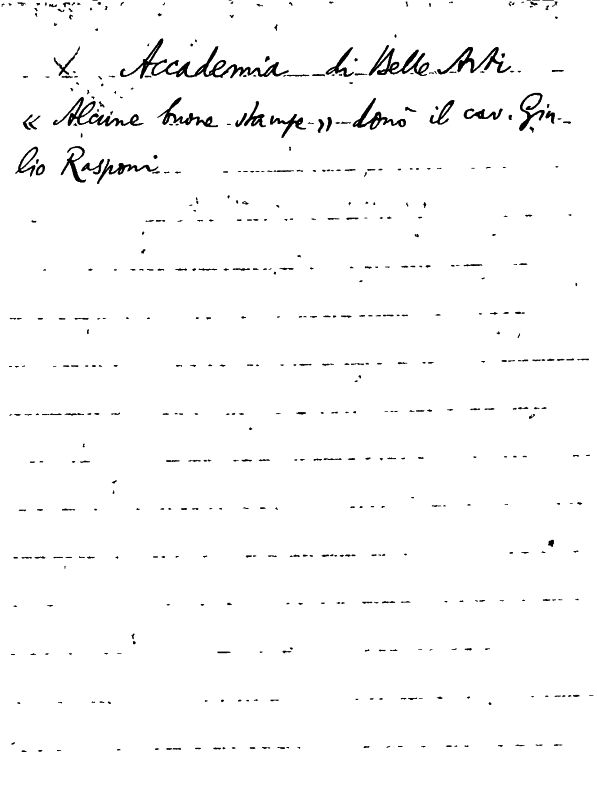 X Accademia di Belle Arti
« Alcune buone stampe » donò il cav. Giu-
lio Rasponi